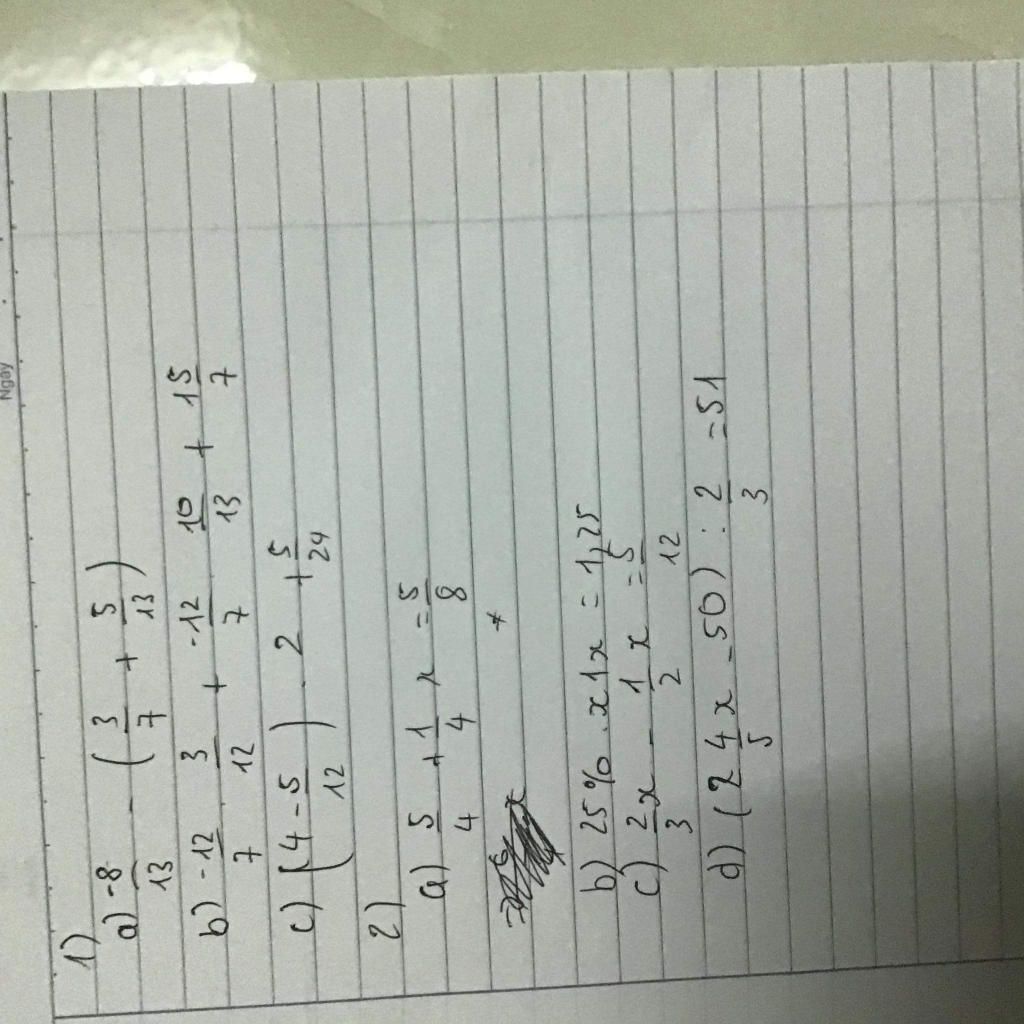 Ngày
1)
a) -8/13 - (3/7 + 5/13)
b) -12/7 3/12 + -12/7 10/13 + 15/7
c) (4 - 5/12) . 2 + 5/24
2)
a) 5/4 + 1/4 x = 5/8
b) 25% . x 1x = 1,25
c) 2/3 x - 1/2 x = 5/12
d) (2 4/5 x - 50) : 2/3 = 51